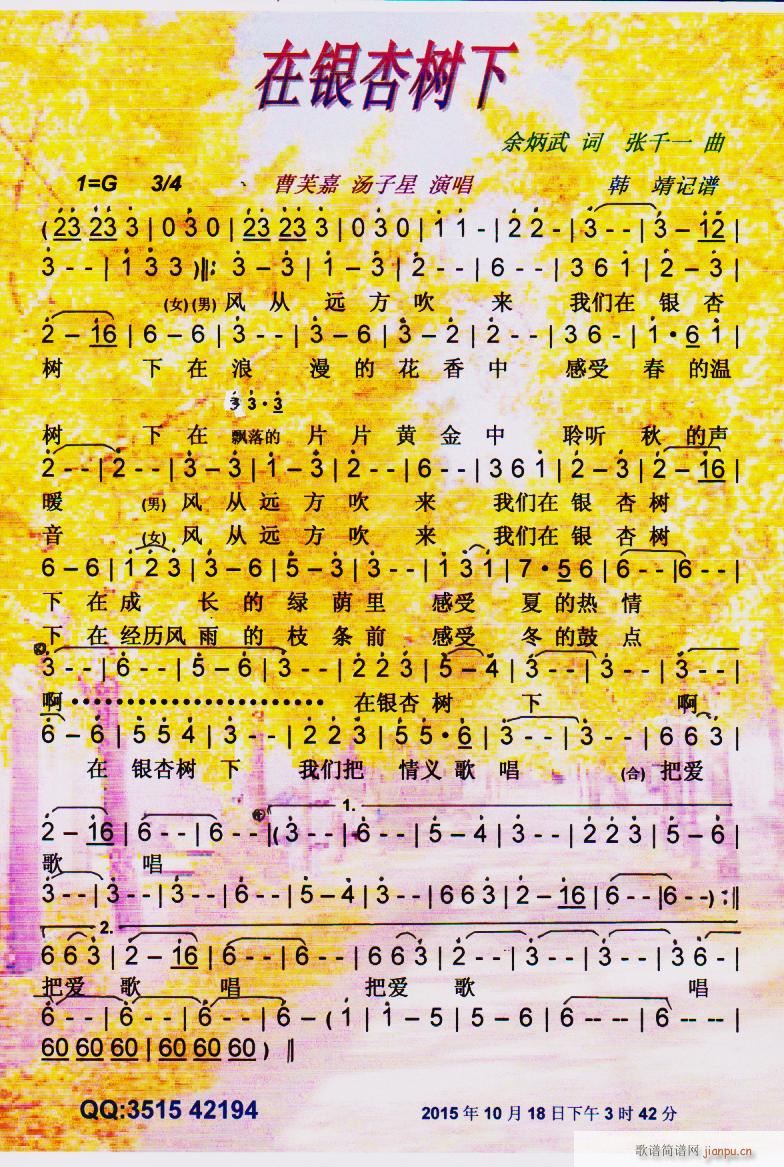 在银杏树下
余炳武 词 张千一 曲
1=G 3/4 曹芙嘉 汤子星 演唱 韩 靖记谱
( 23 23 3 | 0 3 0 | 23 23 3 | 0 3 0 | 1 1 - | 2 2 - | 3 - - | 3 - 12 |
3 - - | 1 3 3 ) ‖: 3 - 3 | 1 - 3 | 2 - - | 6 - - | 3 6 1 | 2 - 3 |
(女)(男) 风 从 远 方 吹 来 我们在 银 杏
2 - 16 | 6 - 6 | 3 - - | 3 - 6 | 3 - 2 | 2 - - | 3 6 - | 1 · 6 1 |
树 下 在 浪 漫 的 花 香 中 感受 春 的温
3 3 · 3
树 下 在 飘落的 片 片 黄 金 中 聆听 秋 的声
2 - - | 2 - - | 3 - 3 | 1 - 3 | 2 - - | 6 - - | 3 6 1 | 2 - 3 | 2 - 16 |
暖 (男) 风 从 远 方 吹 来 我们在 银 杏 树
音 (女) 风 从 远 方 吹 来 我们在 银 杏 树
6 - 6 | 1 2 3 | 3 - 6 | 5 - 3 | 3 - - | 1 3 1 | 7 · 5 6 | 6 - - | 6 - - |
下 在 成 长 的 绿 荫 里 感受 夏 的热 情
下 在 经历风 雨 的 枝 条 前 感受 冬 的鼓 点
3 - - | 6 - - | 5 - 6 | 3 - - | 2 2 3 | 5 - 4 | 3 - - | 3 - - | 3 - - |
啊 在银杏 树 下 啊
6 - 6 | 5 5 4 | 3 - - | 2 2 3 | 5 5 · 6 | 3 - - | 3 - - | 6 6 3 |
在 银杏树 下 我们把 情义歌 唱 (合) 把爱
1.
2 - 16 | 6 - - | 6 - - | 6 - - | ( 3 - - | 6 - - | 5 - 4 | 3 - - | 2 2 3 | 5 - 6 |
歌 唱
3 - - | 3 - - | 3 - - | 6 - - | 5 - 4 | 3 - - | 6 6 3 | 2 - 16 | 6 - - | 6 - - ) :‖
2.
6 6 3 | 2 - 16 | 6 - - | 6 - - | 6 6 3 | 2 - - | 3 - - | 3 - - | 3 6 - |
把爱 歌 唱 把爱 歌 唱
6 - - | 6 - - | 6 - - | 6 - ( 1 | 1 - 5 | 5 - 6 | 6 -- -- | 6 -- -- |
60 60 60 | 60 60 60 ) ‖
QQ:3515 42194
2015 年 10 月 18 日下午 3 时 42 分
歌谱简谱网 jianpu.cn